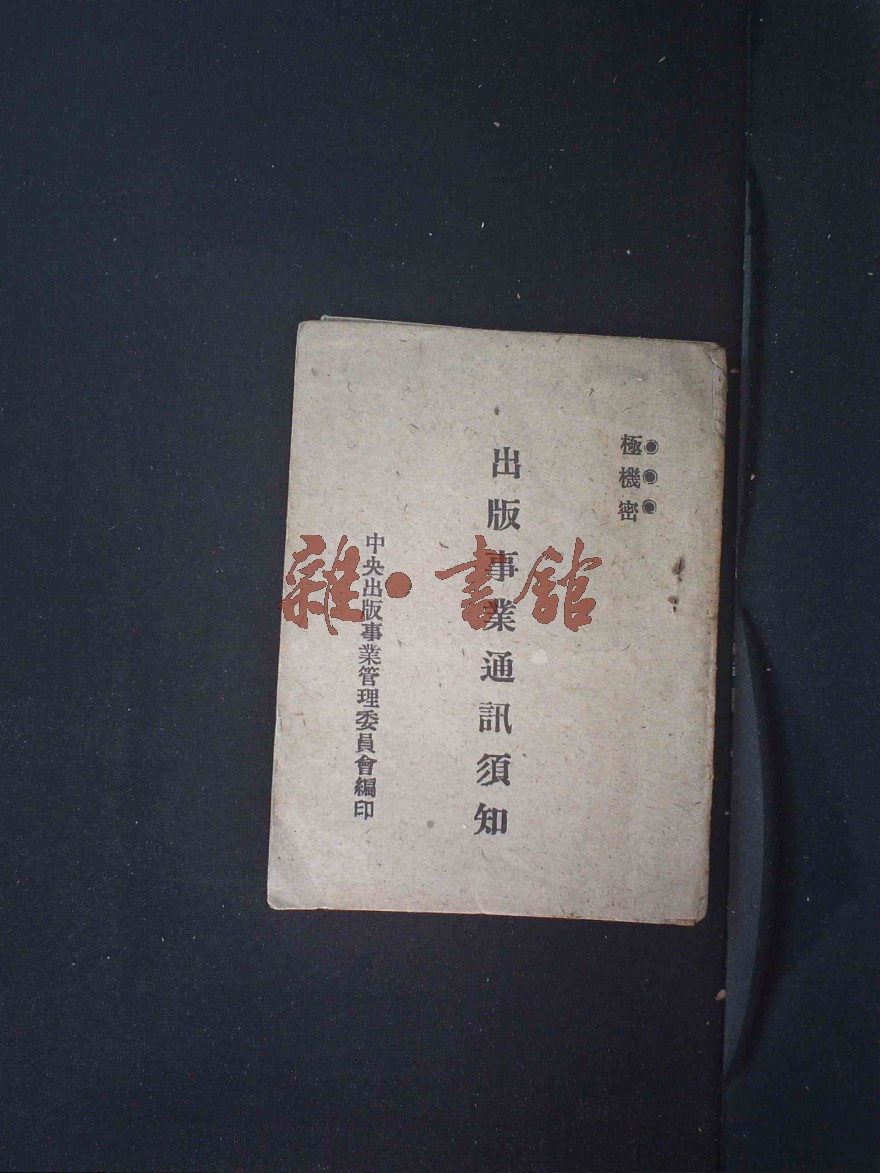 極機密
出版事業通訊須知
中央出版事業管理委員會編印
雜·書館